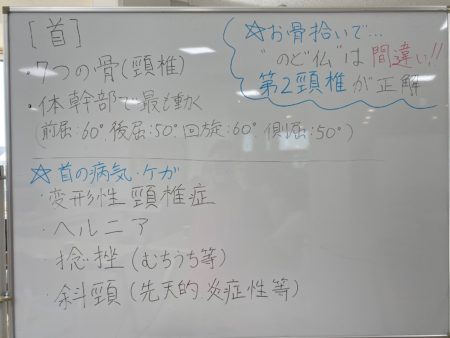 [首]
・7つの骨(頸椎)
・体幹部で最も動く
(前屈:60°,後屈:50°,回旋:60°,側屈:50°)
☆お骨拾いで…
"のど仏"は間違い!!
第2頸椎が正解
☆首の病気・ケガ
・変形性頸椎症
・ヘルニア
・捻挫(むちうち等)
・斜頸(先天的,炎症性等)